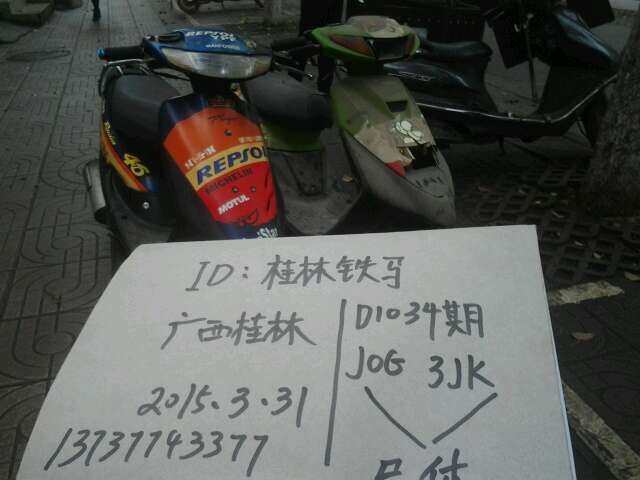 REPSOL
46
REPSOL
MICHELIN
MOTUL
ID: 桂林铁马
广西桂林
2015.3.31
13737743377
D1034期
JOG 3JK